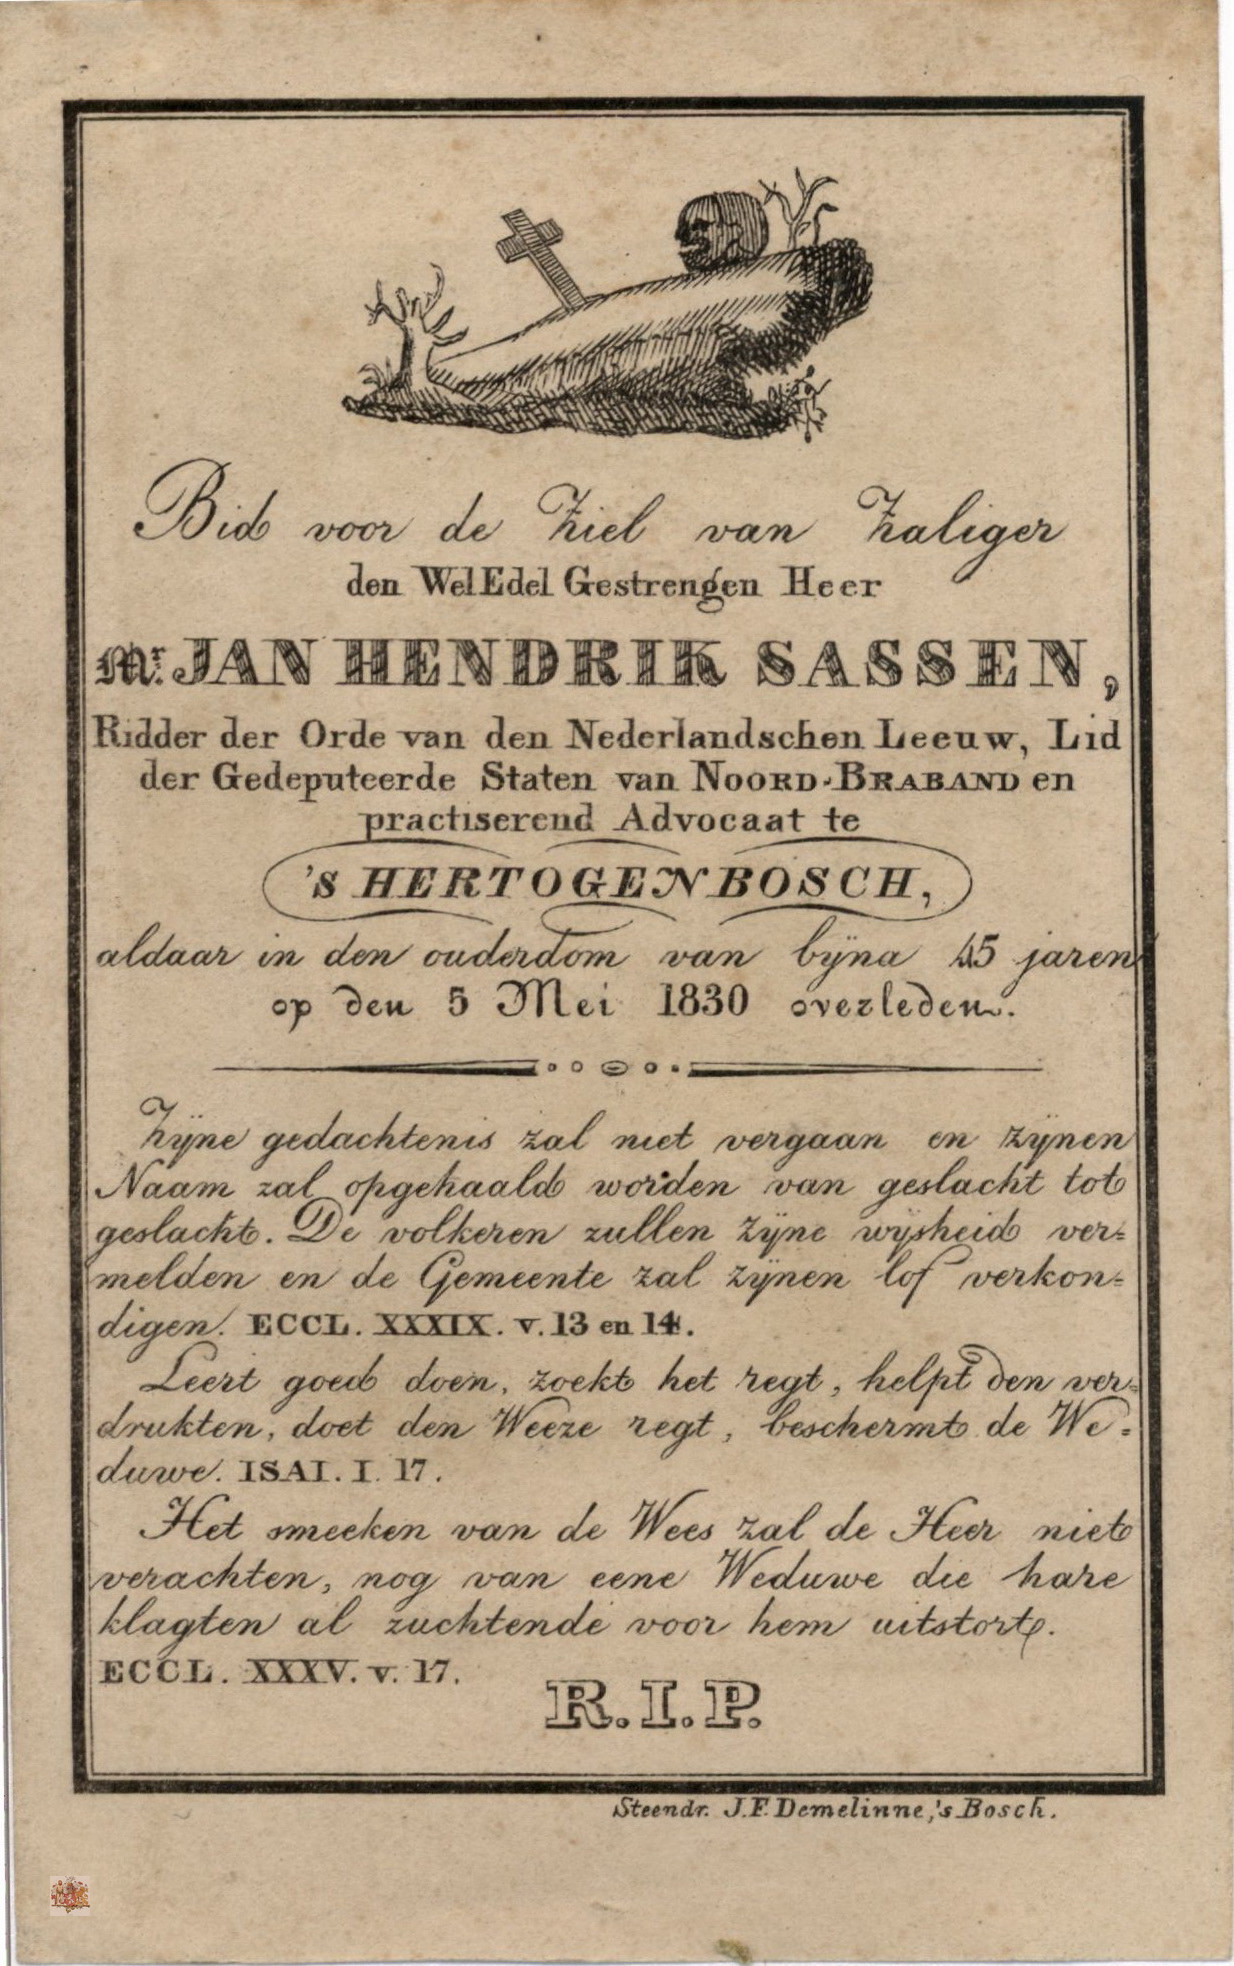 Bid voor de Ziel van Zaliger
den WelEdel Gestrengen Heer
Mr. JAN HENDRIK SASSEN,
Ridder der Orde van den Nederlandschen Leeuw, Lid
der Gedeputeerde Staten van NOORD-BRABAND en
practiserend Advocaat te
's HERTOGENBOSCH,
aldaar in den ouderdom van bÿna 45 jaren
op den 5 Mei 1830 overleden.
Zÿne gedachtenis zal niet vergaan en zÿnen
Naam zal opgehaald worden van geslacht tot
geslacht. De volkeren zullen zÿne wÿsheid ver=
melden en de Gemeente zal zÿnen lof verkon=
digen. ECCL. XXXIX. v. 13 en 14.
Leert goed doen, zoekt het regt, helpt den ver=
drukten, doet den Weeze regt, beschermt de We=
duwe. ISAI. I. 17.
Het smeeken van de Wees zal de Heer niet
verachten, nog van eene Weduwe die hare
klagten al zuchtende voor hem uitstort.
ECCL. XXXV. v. 17.
R.I.P.
Steendr. J.F. Demelinne, 's Bosch.